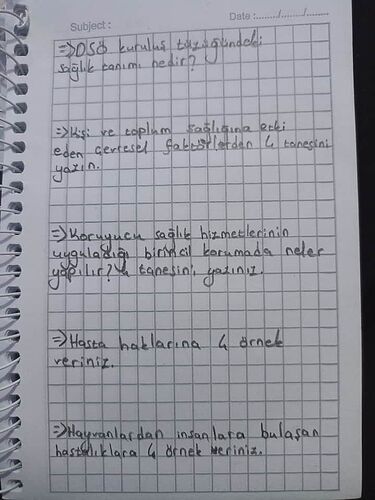 Subject :
Date :......../......./........
=>DSÖ kuruluş tüzüğündeki
sağlık tanımı nedir?
=>Kişi ve toplum sağlığına etki
eden çevresel faktörlerden 4 tanesini
yazın.
=>Koruyucu sağlık hizmetlerinin
uyguladığı birincil korumada neler
yapılır? 4 tanesini yazınız.
=>Hasta haklarına 4 örnek
veriniz.
=>Hayvanlardan insanlara bulaşan
hastalıklara 4 örnek veriniz.